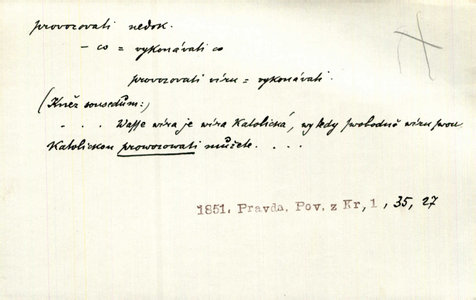 provozovati nedok.
– co = vykonávati co
provozovati víru = vykonávati.
(Kněz sousedům:)
. . . Wasse wíra je wíra Katolická, wy tedy swobodně wíru swou
Katolickou prowozowati můžete. . . .
1851. Pravda. Pov. z Kr, 1, 35, 27